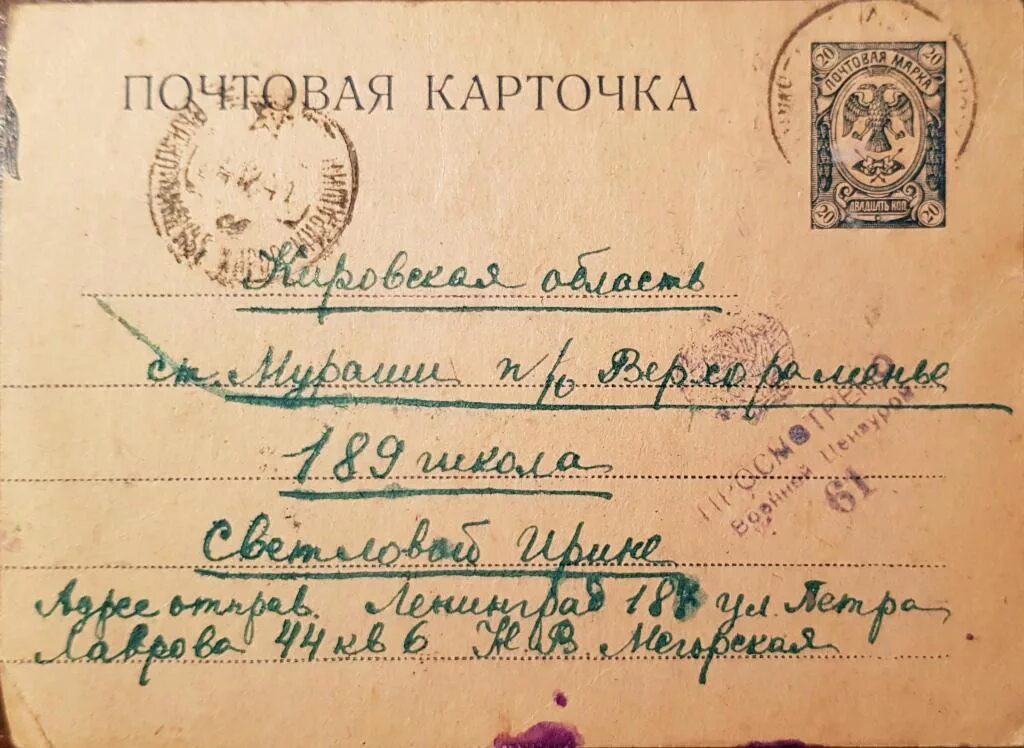 ПОЧТОВАЯ КАРТОЧКА
20 20
ПОЧТОВАЯ МАРКА
ДВАДЦАТЬ КОП.
20 20
Кировская область
ст. Мураши п/о Верхораменье
189 школа
Светловой Ирине
ПРОСМОТРЕНО
Военной Цензурой
61
Адрес отправ. Ленинград 187 ул. Петра
Лаврова 44 кв 6 Н В Мегорская